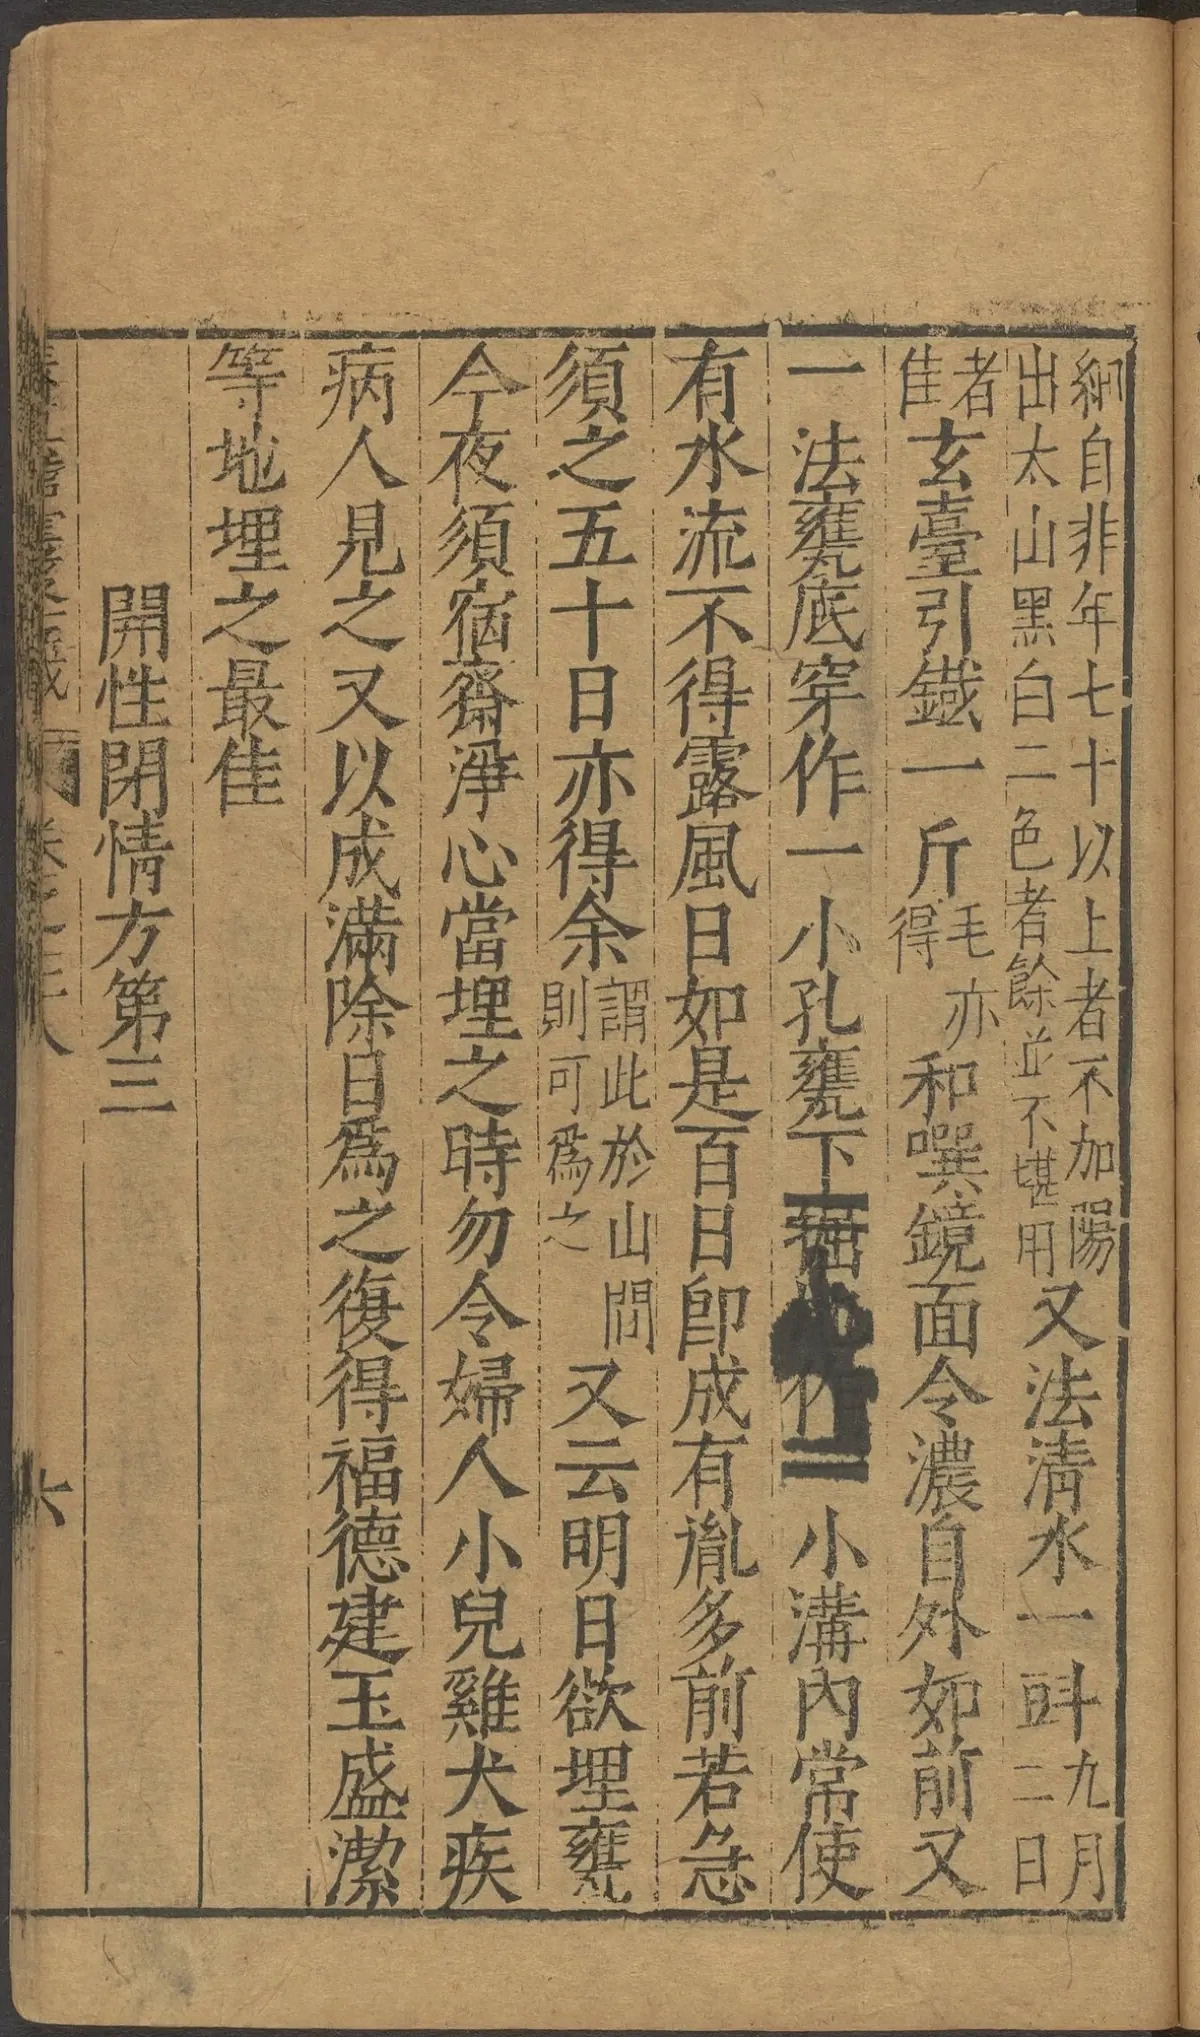 自非年七十以上者不加陽
出太山黑白二色者餘並不堪用
又法清水一㪷
九月
二日
者
佳
玄臺引鐵一斤
毛亦
得
和噀鏡面令濃自外如前又
一法甕底穿作一小孔甕下掘作一小溝內常使
有水流不得露風日如是百日即成有胤多前若急
須之五十日亦得余
謂此於山間
則可爲之
又云明日欲埋甕
今夜須宿齋淨心當埋之時勿令婦人小兒雞犬疾
病人見之又以成滿除日爲之復得福德建玉盛潔
等地埋之最佳
開性閉情方第三
六